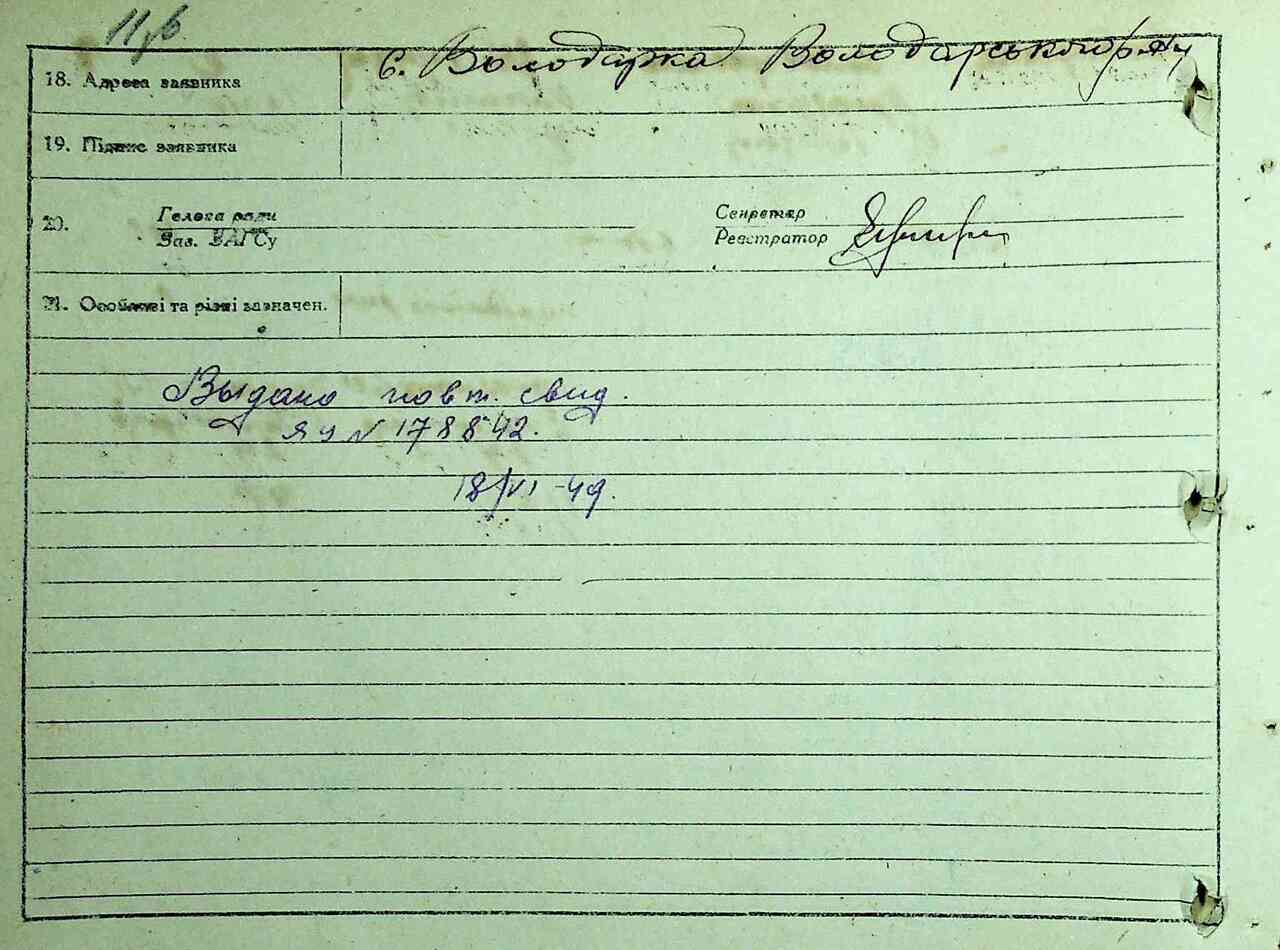 с. Володарка Володарського р-ну
18. Адреса заявника
19. Підпис заявника
20. Голова ради
Зав. ЗАГСу
Секретар
Реєстратор
21. Особливі та різні зазначен.
Выдано повт. свид.
ЯЧ N 178842.
18/VI-49.